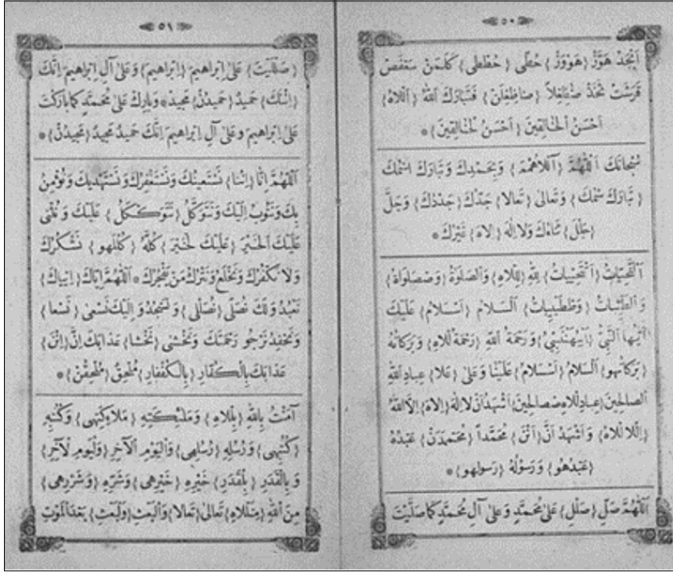 ٥٠
اَبْجَدْ هَوَّزْ {هَوْوَزْ} حُطّى {حُطْطى} كَلَمَنْ سَعْفَصْ
قَرَشَتْ ثَخَذْ ضَظِغِلاً {ضَاظِغِلَنْ} فَتَبَارَكَ اللهُ {اَللاهُ}
اَحْسَنُ الْخَالِقِينَ {اَحْسَنُ لْخَالِقِينَ} *
سُبْحَانَكَ اَللّٰهُمَّ {اَللَاهُمْمَ} وَبِحَمْدِكَ وَتَبَارَكَ اسْمُكَ
{تَبَارَكَ سْمُكَ} وَتَعَالٰى {تَعَالا} جَدُّكَ {جَدْدُكَ} وَجَلَّ
{جَلْلَ} ثَنَاؤُكَ وَلَا اِلٰهَ {اِلَاهَ} غَيْرُكَ *
اَلتَّحِيَّاتُ {اَتْتَحِيْيَاتُ} لِلّٰهِ {لِللاهِ} وَالصَّلَوٰةُ {وَصْصَلَوَاةُ}
وَالطَّيِّبَاتُ {وَطْطَيْيِبَاتُ} اَلسَّلَامُ {اَسْسَلَامُ} عَلَيْكَ
اَيُّهَا النَّبِيُّ وَرَحْمَةُ اللهِ {رَحْمَةُ لْلاهِ} وَبَرَكَاتُهُ
{بَرَكَاتُهو} اَلسَّلَامُ {اَسْسَلَامُ} عَلَيْنَا وَعَلٰى {عَلا} عِبَادِ اللهِ
الصَّالِحِينَ {عِبَادِ لْلاهِ صْصَالِحِينَ} اَشْهَدُ اَنْ لَا اِلٰهَ {اِلَاهَ} اِلَّا اللهُ
{اِلْلَلْلاهُ} وَاَشْهَدُ اَنَّ {اَنْنَ} مُحَمَّداً {مُحَمْمَدَنْ} عَبْدُهُ
{عَبْدُهُو} وَرَسُولُهُ {رَسُولُهو} *
اَللّٰهُمَّ صَلِّ {صَلْلِ} عَلٰى مُحَمَّدٍ وَعَلٰى آلِ مُحَمَّدٍ كَمَا صَلَّيْتَ
٥١
{صَلْلَيْتَ} عَلٰى اِبْرٰهِيمَ {اِبْرَاهِيمَ} وَعَلٰى آلِ اِبْرٰهِيمَ اِنَّكَ
{اِنْنَكَ} حَمِيدٌ {حَمِيدُنْ} مَجِيدٌ * وَبَارِكْ عَلٰى مُحَمَّدٍ كَمَا بَارَكْتَ
عَلٰى اِبْرٰهِيمَ وَعَلٰى آلِ اِبْرٰهِيمَ اِنَّكَ حَمِيدٌ مَجِيدٌ {مَجِيدُنْ} *
اَللّٰهُمَّ اِنَّا {اِنْنَا} نَسْتَعِينُكَ وَنَسْتَغْفِرُكَ وَنَسْتَهْدِيكَ وَنُؤْمِنُ
بِكَ وَنَتُوبُ اِلَيْكَ وَنَتَوَكَّلُ {نَتَوَكْكَلُ} عَلَيْكَ وَنُثْنِى
عَلَيْكَ الْخَيْرَ {عَلَيْكَ لْخَيْرَ} كُلَّهُ {كُلْلَهو} نَشْكُرُكَ
وَلَا نَكْفُرُكَ وَنَخْلَعُ وَنَتْرُكُ مَنْ يَفْجُرُكَ * اَللّٰهُمَّ اِيَّاكَ {اِيْيَاكَ}
نَعْبُدُ وَلَكَ نُصَلِّى {نُصَلْلى} وَنَسْجُدُ وَاِلَيْكَ نَسْعٰى {نَسْعا}
وَنَحْفِدُ نَرْجُو رَحْمَتَكَ وَنَخْشٰى {نَخْشا} عَذَابَكَ اِنَّ {اِنْنَ}
عَذَابَكَ بِالْكُفَّارِ {بِالْكُفْفَارِ} مُلْحِقٌ {مُلْحِقُنْ} *
آمَنْتُ بِاللهِ {بِلْلاهِ} وَمَلٰئِكَتِهِ {مَلَاءِكَتِهى} وَكُتُبِهِ
{كُتُبِهى} وَرُسُلِهِ {رُسُلِهى} وَالْيَوْمِ الْآخِرِ {وَلْيَوْمِ لْآخِرِ}
وَبِالْقَدَرِ {بِلْقَدَرِ} خَيْرِهِ {خَيْرِهى} وَشَرِّهِ {وَشَرْرِهى}
مِنَ اللهِ {مِنَلْلاهِ} تَعَالٰى {تَعَالا} وَالْبَعْثِ {وَلْبَعْثِ} بَعْدَ الْمَوْتِ